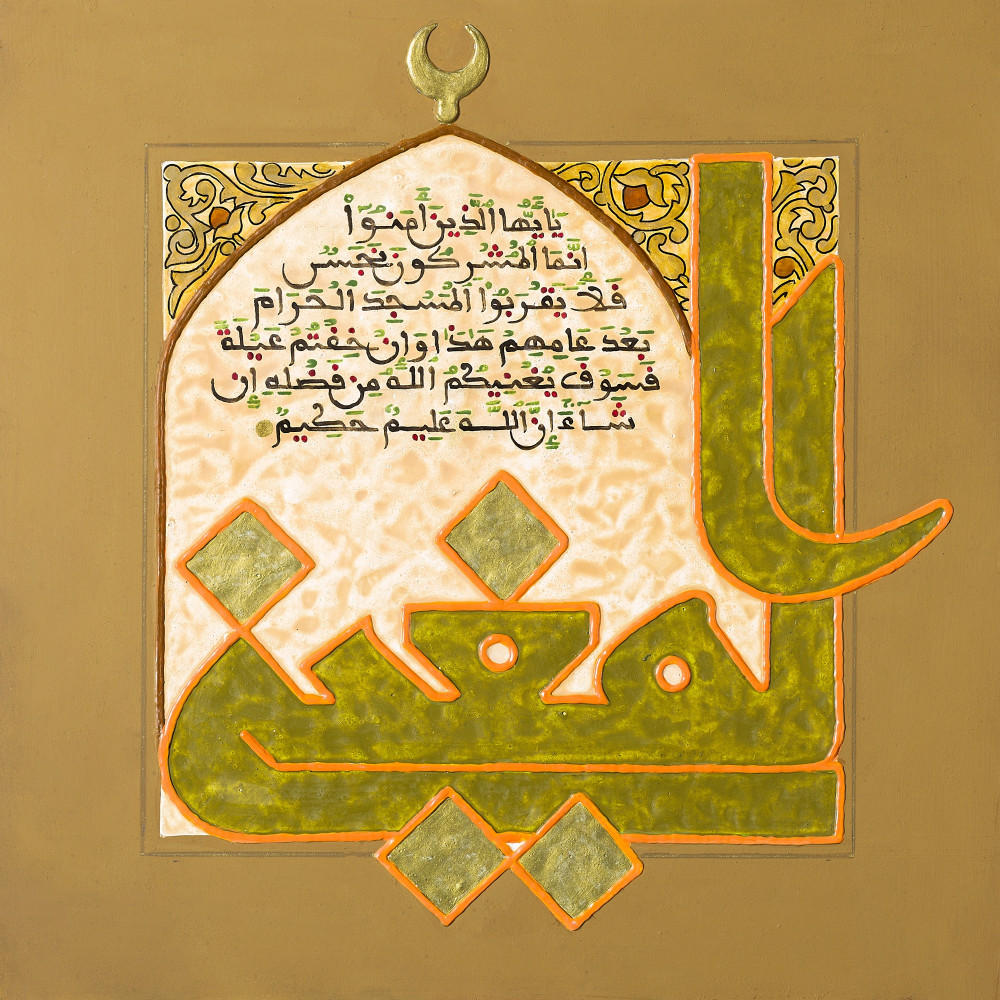 يَٰأَيُّهَا ٱلَّذِينَ ءَامَنُوٓاْ
إِنَّمَا ٱلْمُشْرِكُونَ نَجَسٌ
فَلَا يَقْرَبُواْ ٱلْمَسْجِدَ ٱلْحَرَامَ
بَعْدَ عَامِهِمْ هَٰذَا وَإِنْ خِفْتُمْ عَيْلَةً
فَسَوْفَ يُغْنِيكُمُ ٱللَّهُ مِن فَضْلِهِ إِن
شَآءَ انَّ ٱللَّهَ عَلِيمٌ حَكِيمٌ
المغني